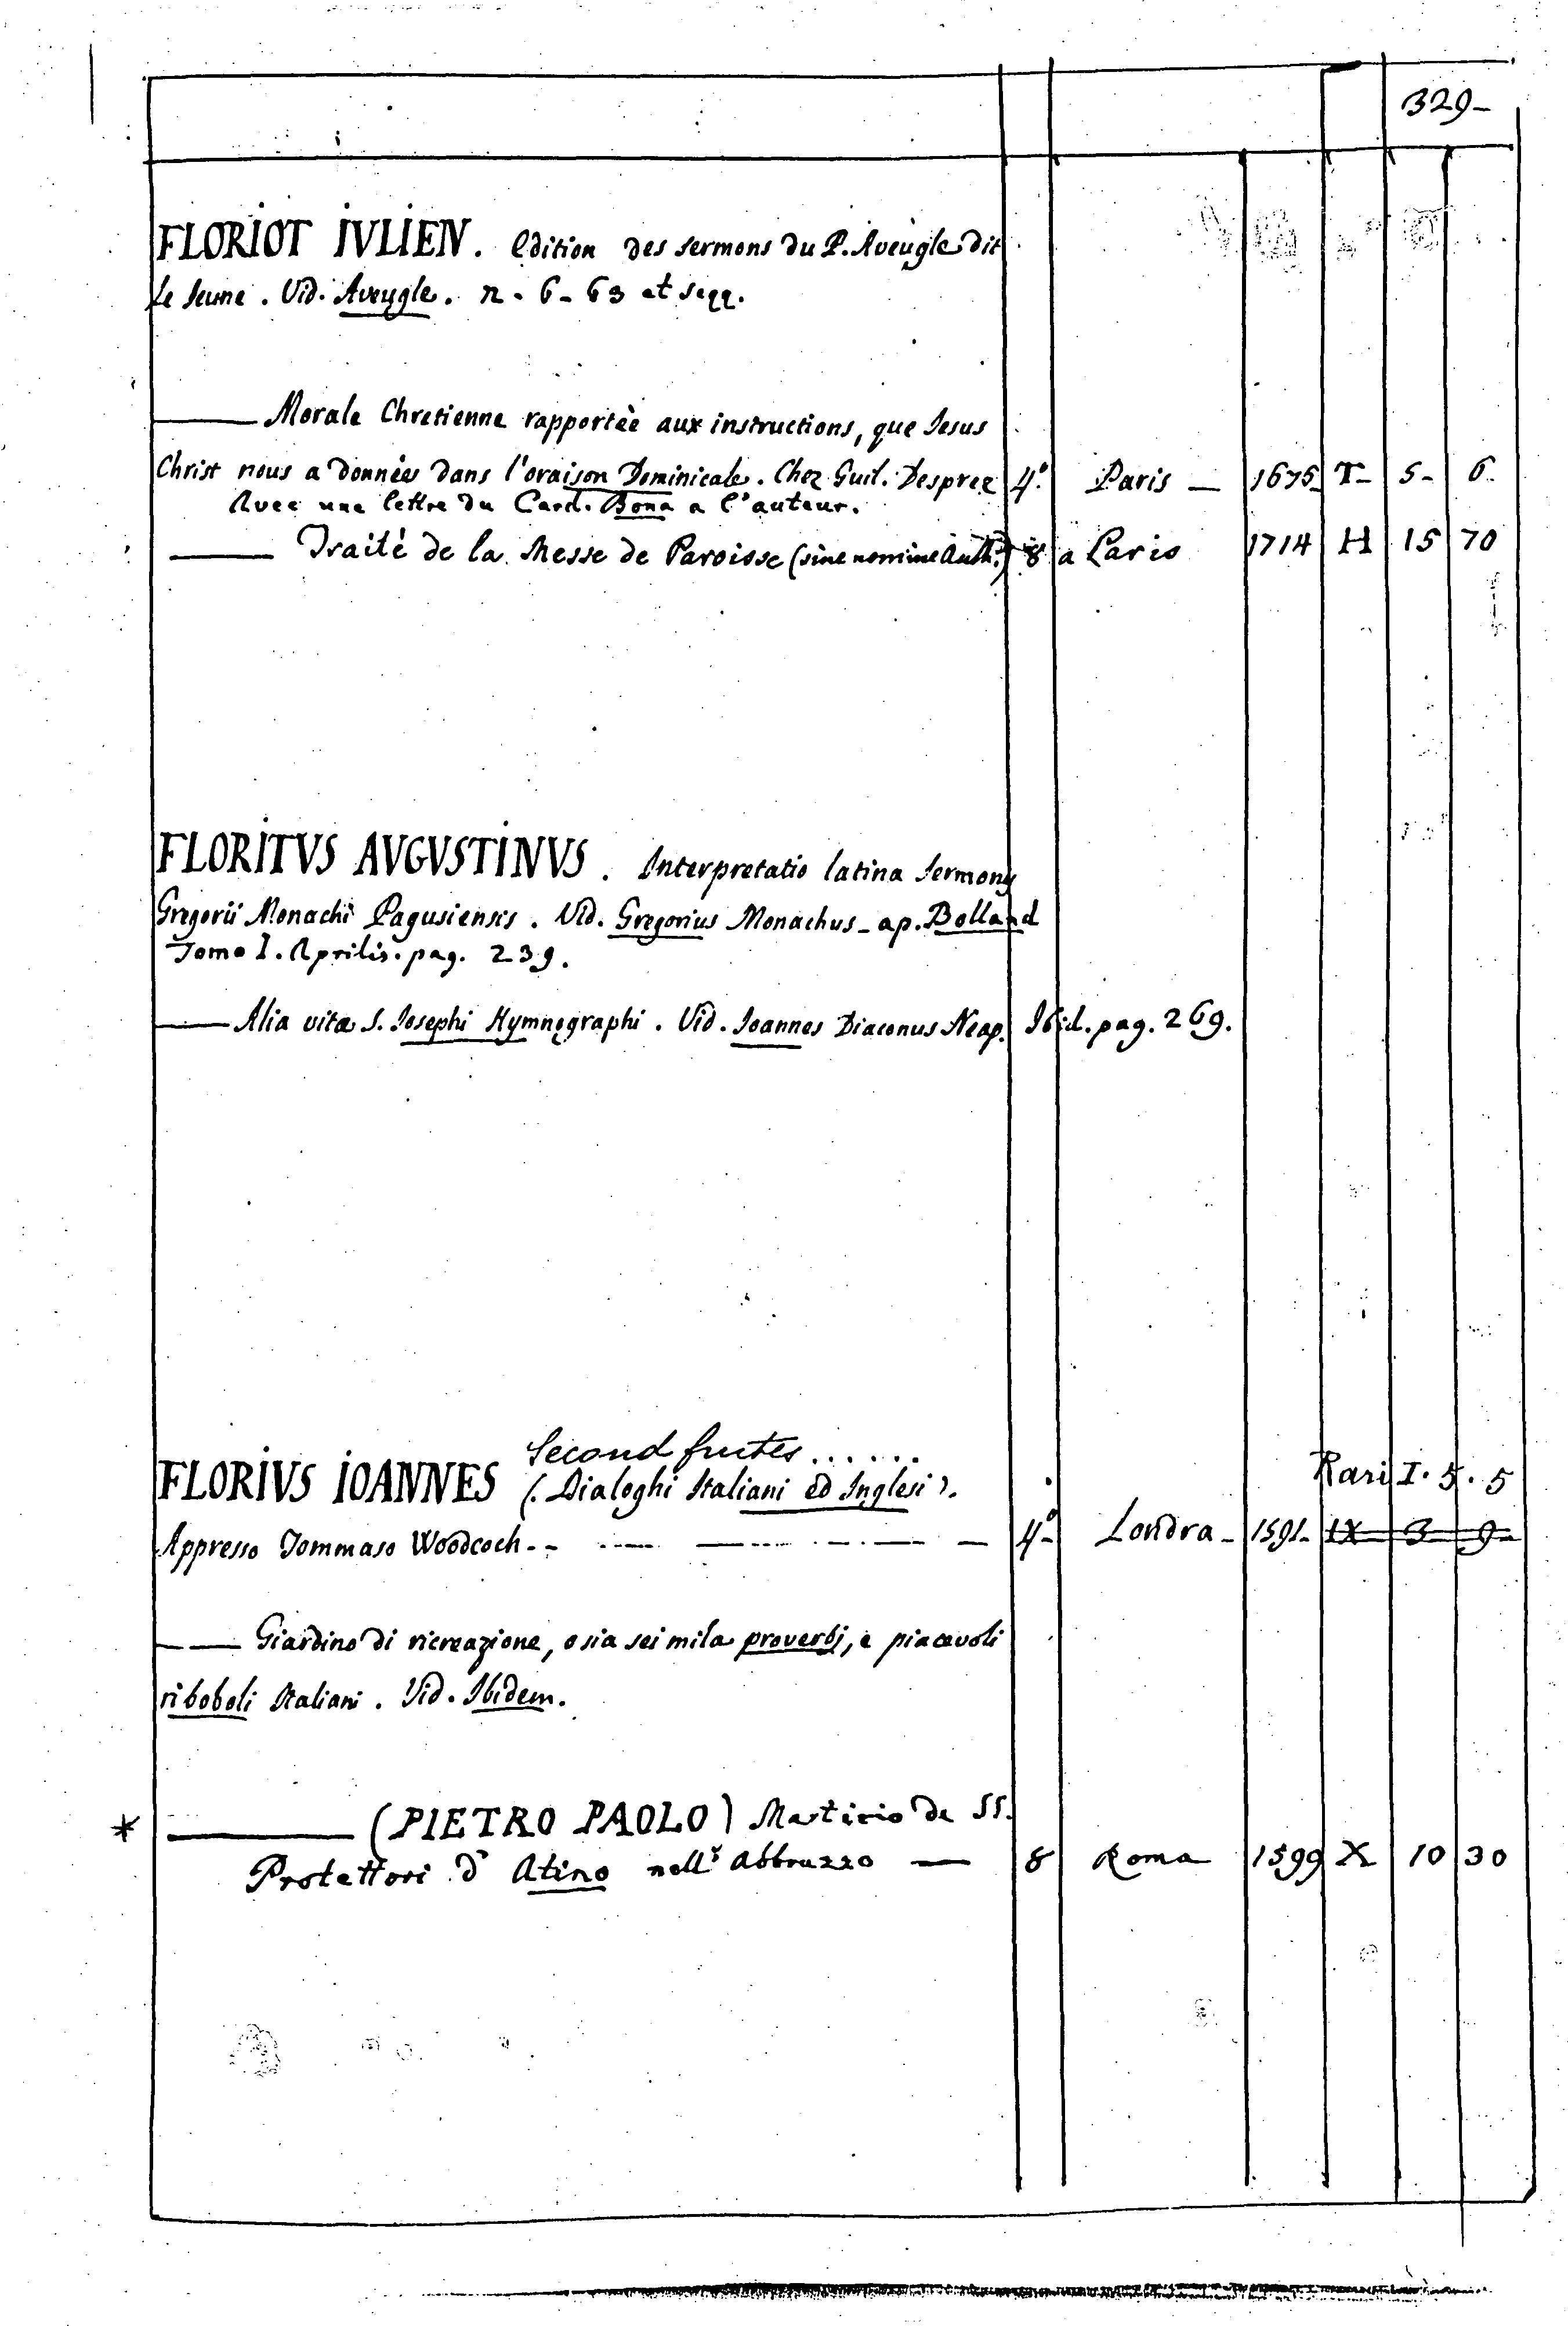 329-
FLORIOT IVLIEN. Edition des sermons du P. Aveùgle dit
le Jeune. Vid. Aveugle. n. 6-63 et seqq.
—— Morale Chretienne rapportèe aux instructions, que Jesus
Christ nous a donnèes dans l'oraison Dominicale. Chez Guil. Desprez 4.º Paris — 1675 T- 5- 6-
Avec une lettre du Card. Bona a l'auteur.
—— Traité de la Messe de Paroisse (sine nomine Auth.) 8 a Paris 1714 H 15 70
FLORITVS AVGVSTINVS. Interpretatio latina Sermonis
Gregorii Monachi Pagusiensis. Vid. Gregorius Monachus - ap. Bolland
Tomo I. Aprilis. pag. 239.
—— Alia vitæ S. Josephi Hymnographi. Vid. Joannes Diaconus Neap. Ibid. pag. 269.
Second frutes ......
FLORIVS IOANNES (. Dialoghi Italiani ed Inglesi ). Rari I. 5. 5
Appresso Tommaso Woodcoch - - 4.º Londra - 1591- IX 3 9-
—— Giardino di ricreazione, o sia sei mila proverbj, e piacevoli
riboboli Italiani. Vid. Ibidem.
* —— (PIETRO PAOLO) Martirio de SS.
Protettori d' Atino nell' Abbruzzo — 8 Roma 1599 X 10 30